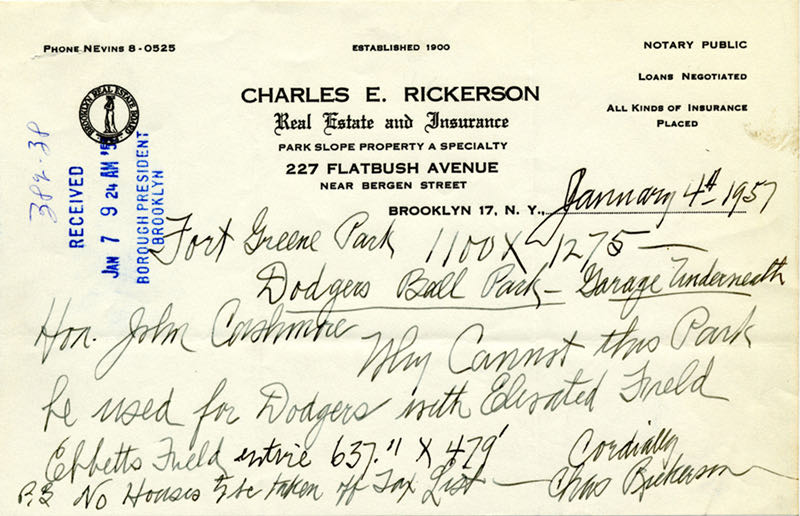 PHONE NEVINS 8-0525
ESTABLISHED 1900
NOTARY PUBLIC
LOANS NEGOTIATED
ALL KINDS OF INSURANCE
PLACED
BROOKLYN REAL ESTATE BOARD
CHARLES E. RICKERSON
Real Estate and Insurance
PARK SLOPE PROPERTY A SPECIALTY
227 FLATBUSH AVENUE
NEAR BERGEN STREET
BROOKLYN 17, N. Y., January 4th 1957
382-38
RECEIVED
JAN 7 9 24 AM '5
BOROUGH PRESIDENT
BROOKLYN
Fort Greene Park 1100 X 1275 —
Dodgers Ball Park — Garage Underneath
Hon. John Cashmore
Why Cannot this Park
be used for Dodgers with Elevated Field
Ebbetts Field entire 637." X 479'
Cordially
P.S. No Houses to be taken off Tax List — Chas Rickerson